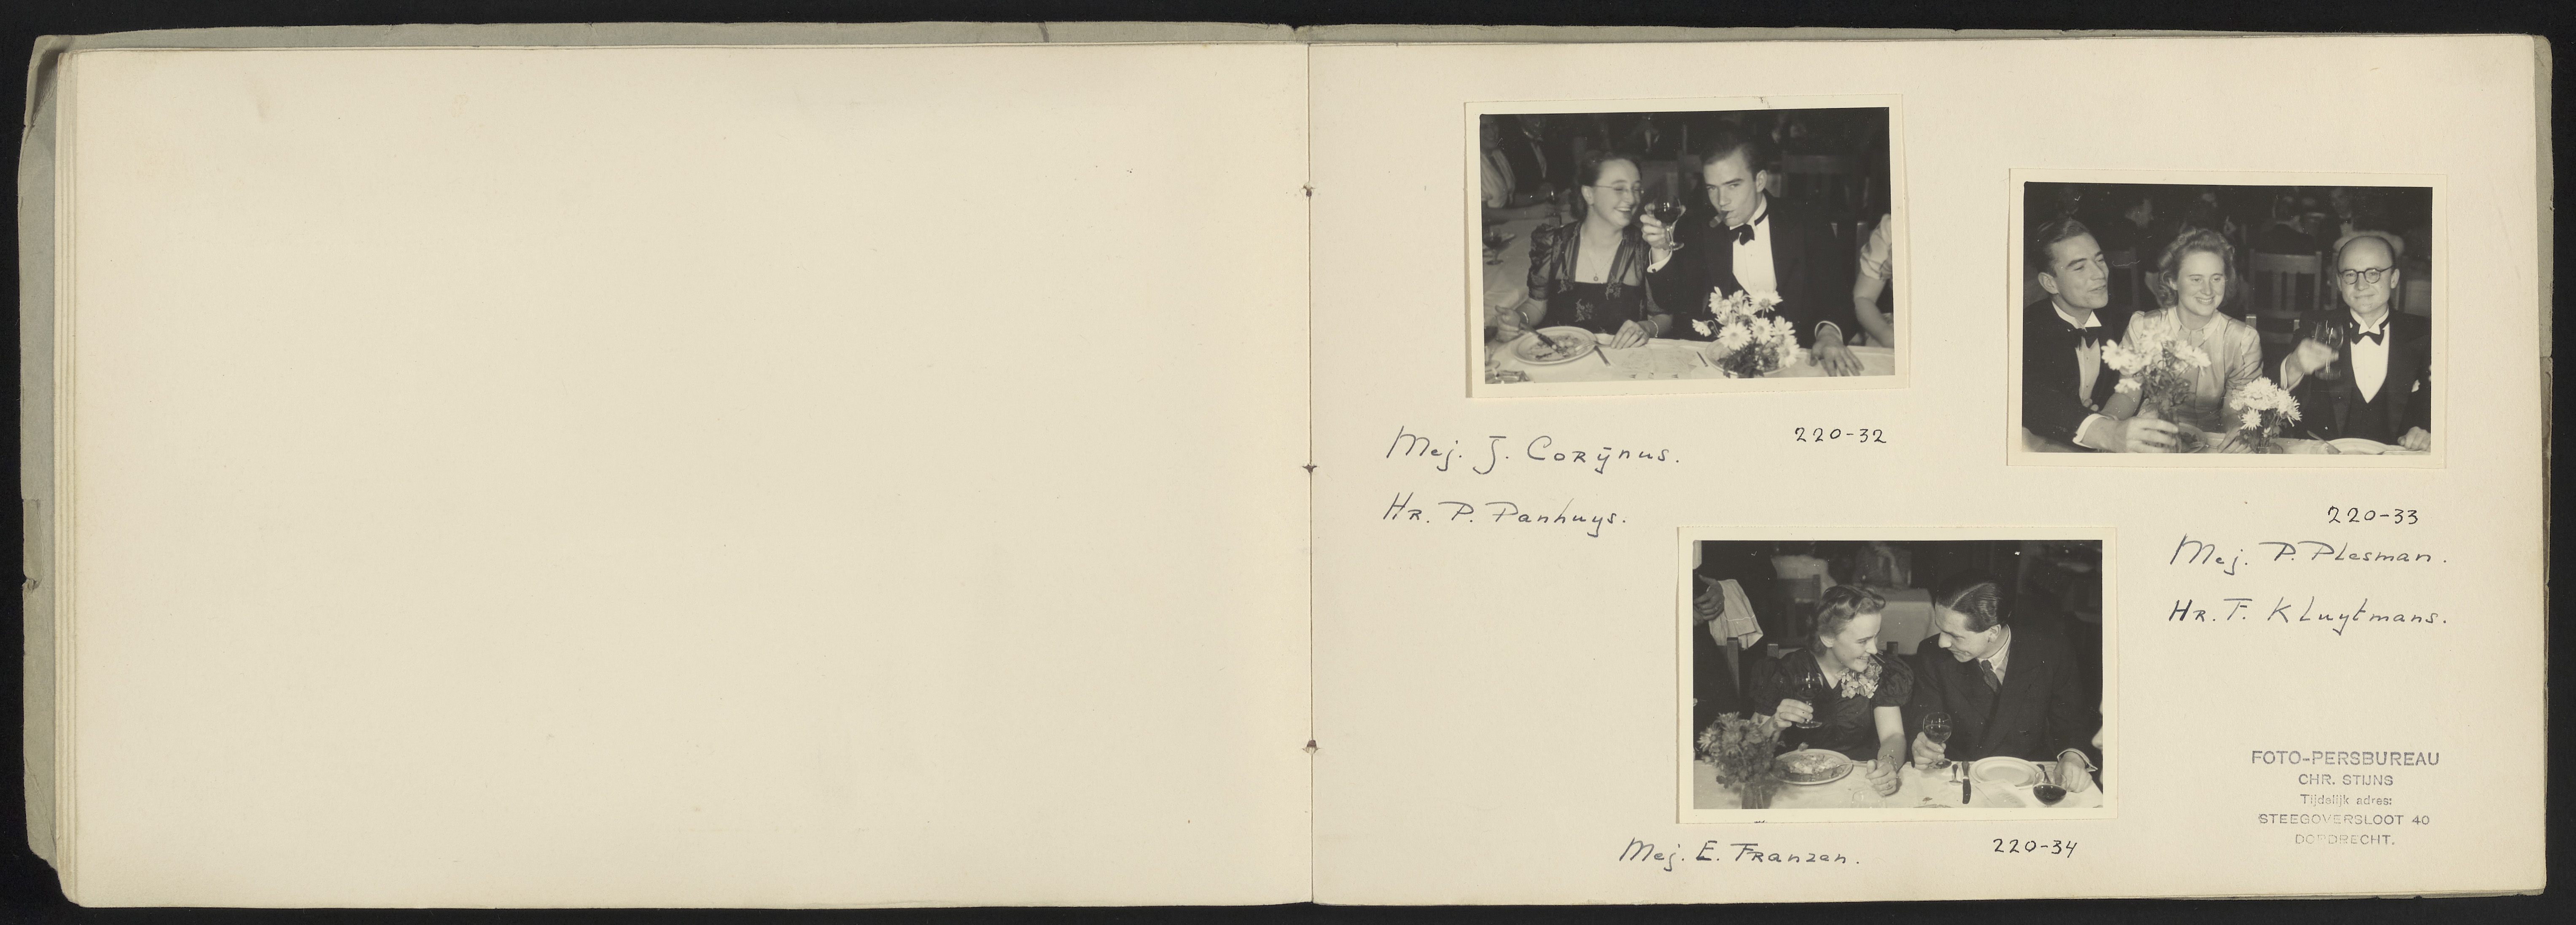 Mej. J. Corÿnus.
220-32
Hr. P. Panhuys.
220-33
Mej. P. Plesman.
Hr. F. Kluytmans.
Mej. E. Franzen.
220-34
FOTO-PERSBUREAU
CHR. STIJNS
Tijdelijk adres:
STEEGOVERSLOOT 40
DORDRECHT.